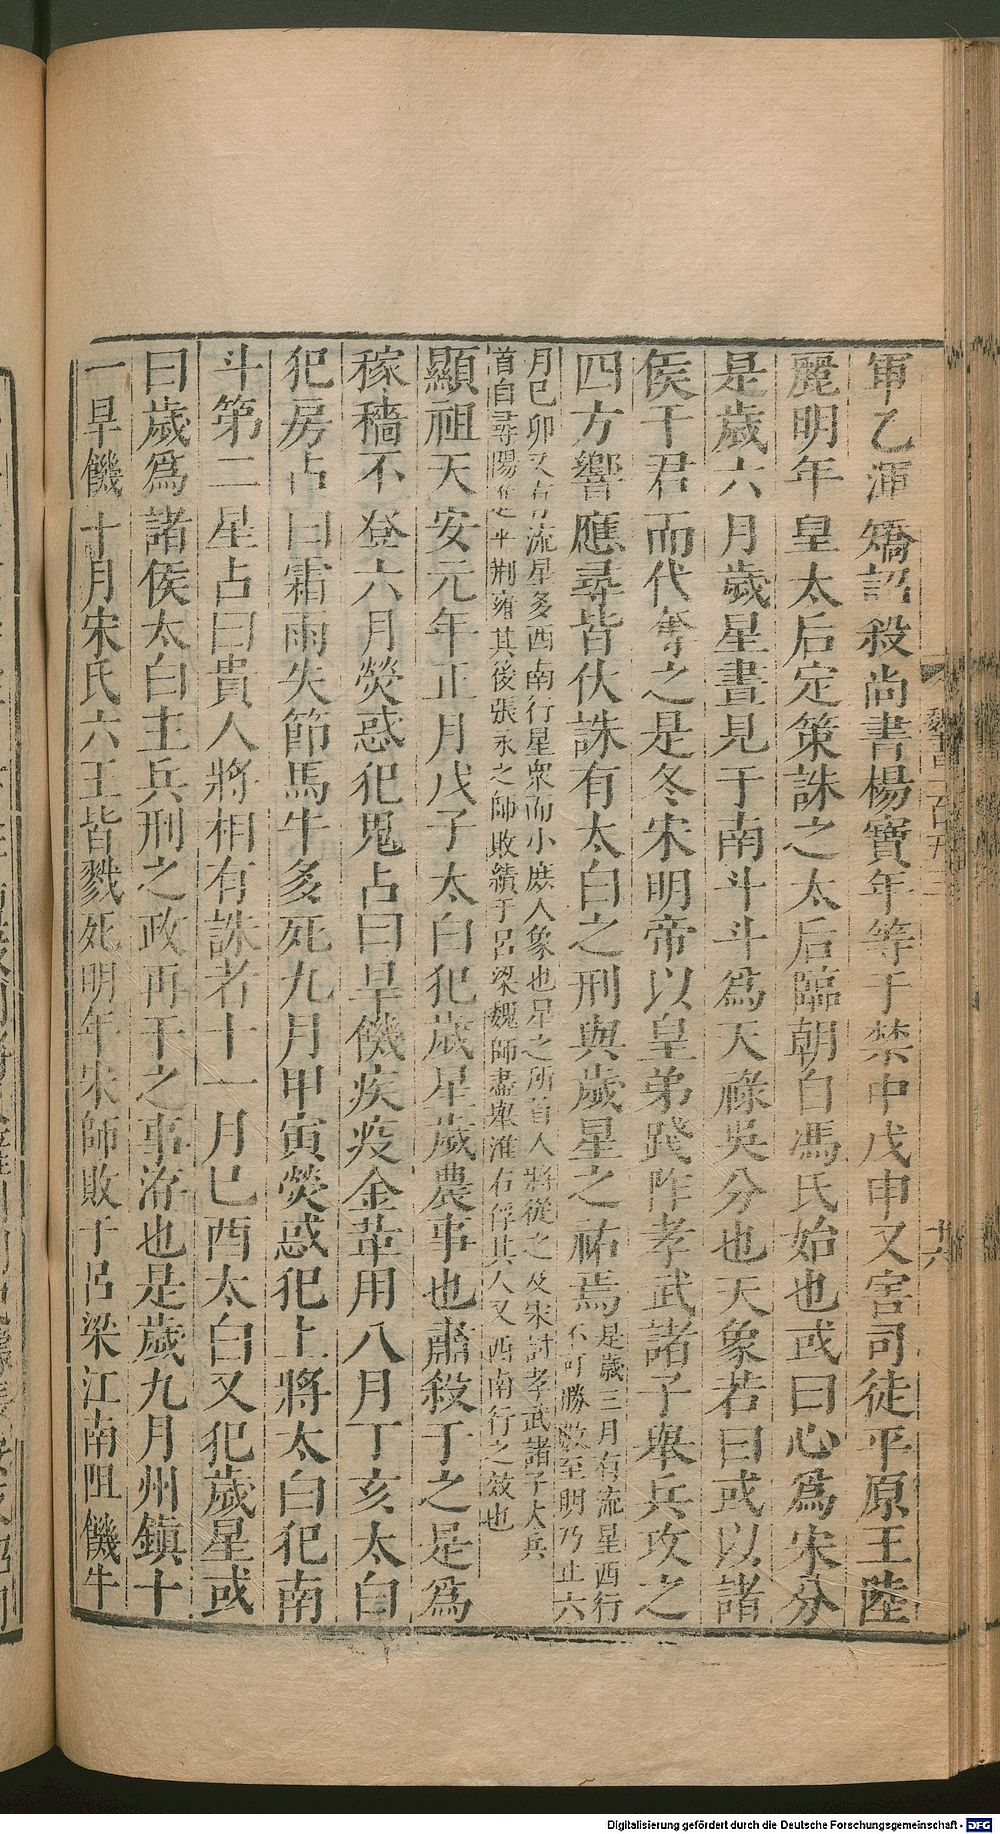 軍乙渾矯詔殺尚書楊寶年等于禁中戊申又害司徒平原王陸
麗明年皇太后定策誅之太后臨朝自馮氏始也或曰心爲宋分
是歲六月歲星晝見于南斗斗爲天祿吳分也天象若曰或以諸
侯干君而代奪之是冬宋明帝以皇弟踐阼孝武諸子舉兵攻之
四方響應尋皆伏誅有太白之刑與歲星之祐焉是歲三月有流星西行
不可勝數至明乃止六
月己卯又有流星多西南行星衆而小庶人象也星之所首人將從之及宋討孝武諸子大兵
首自尋陽平荆雍其後張永之師敗績于呂梁魏師盡舉淮右俘其人又西南行之效也
顯祖天安元年正月戊子太白犯歲星歲農事也肅殺于之是爲
稼穡不登六月熒惑犯鬼占曰旱饑疾疫金革用八月丁亥太白
犯房占曰霜雨失節馬牛多死九月甲寅熒惑犯上將太白犯南
斗第二星占曰貴人將相有誅者十一月己酉太白又犯歲星或
曰歲爲諸侯太白主兵刑之政再干之事洊也是歲九月州鎮十
一旱饑十月宋氏六王皆戮死明年宋師敗于呂梁江南阻饑牛
魏書一百五
廿六
Digitalisierung gefördert durch die Deutsche Forschungsgemeinschaft - DFG